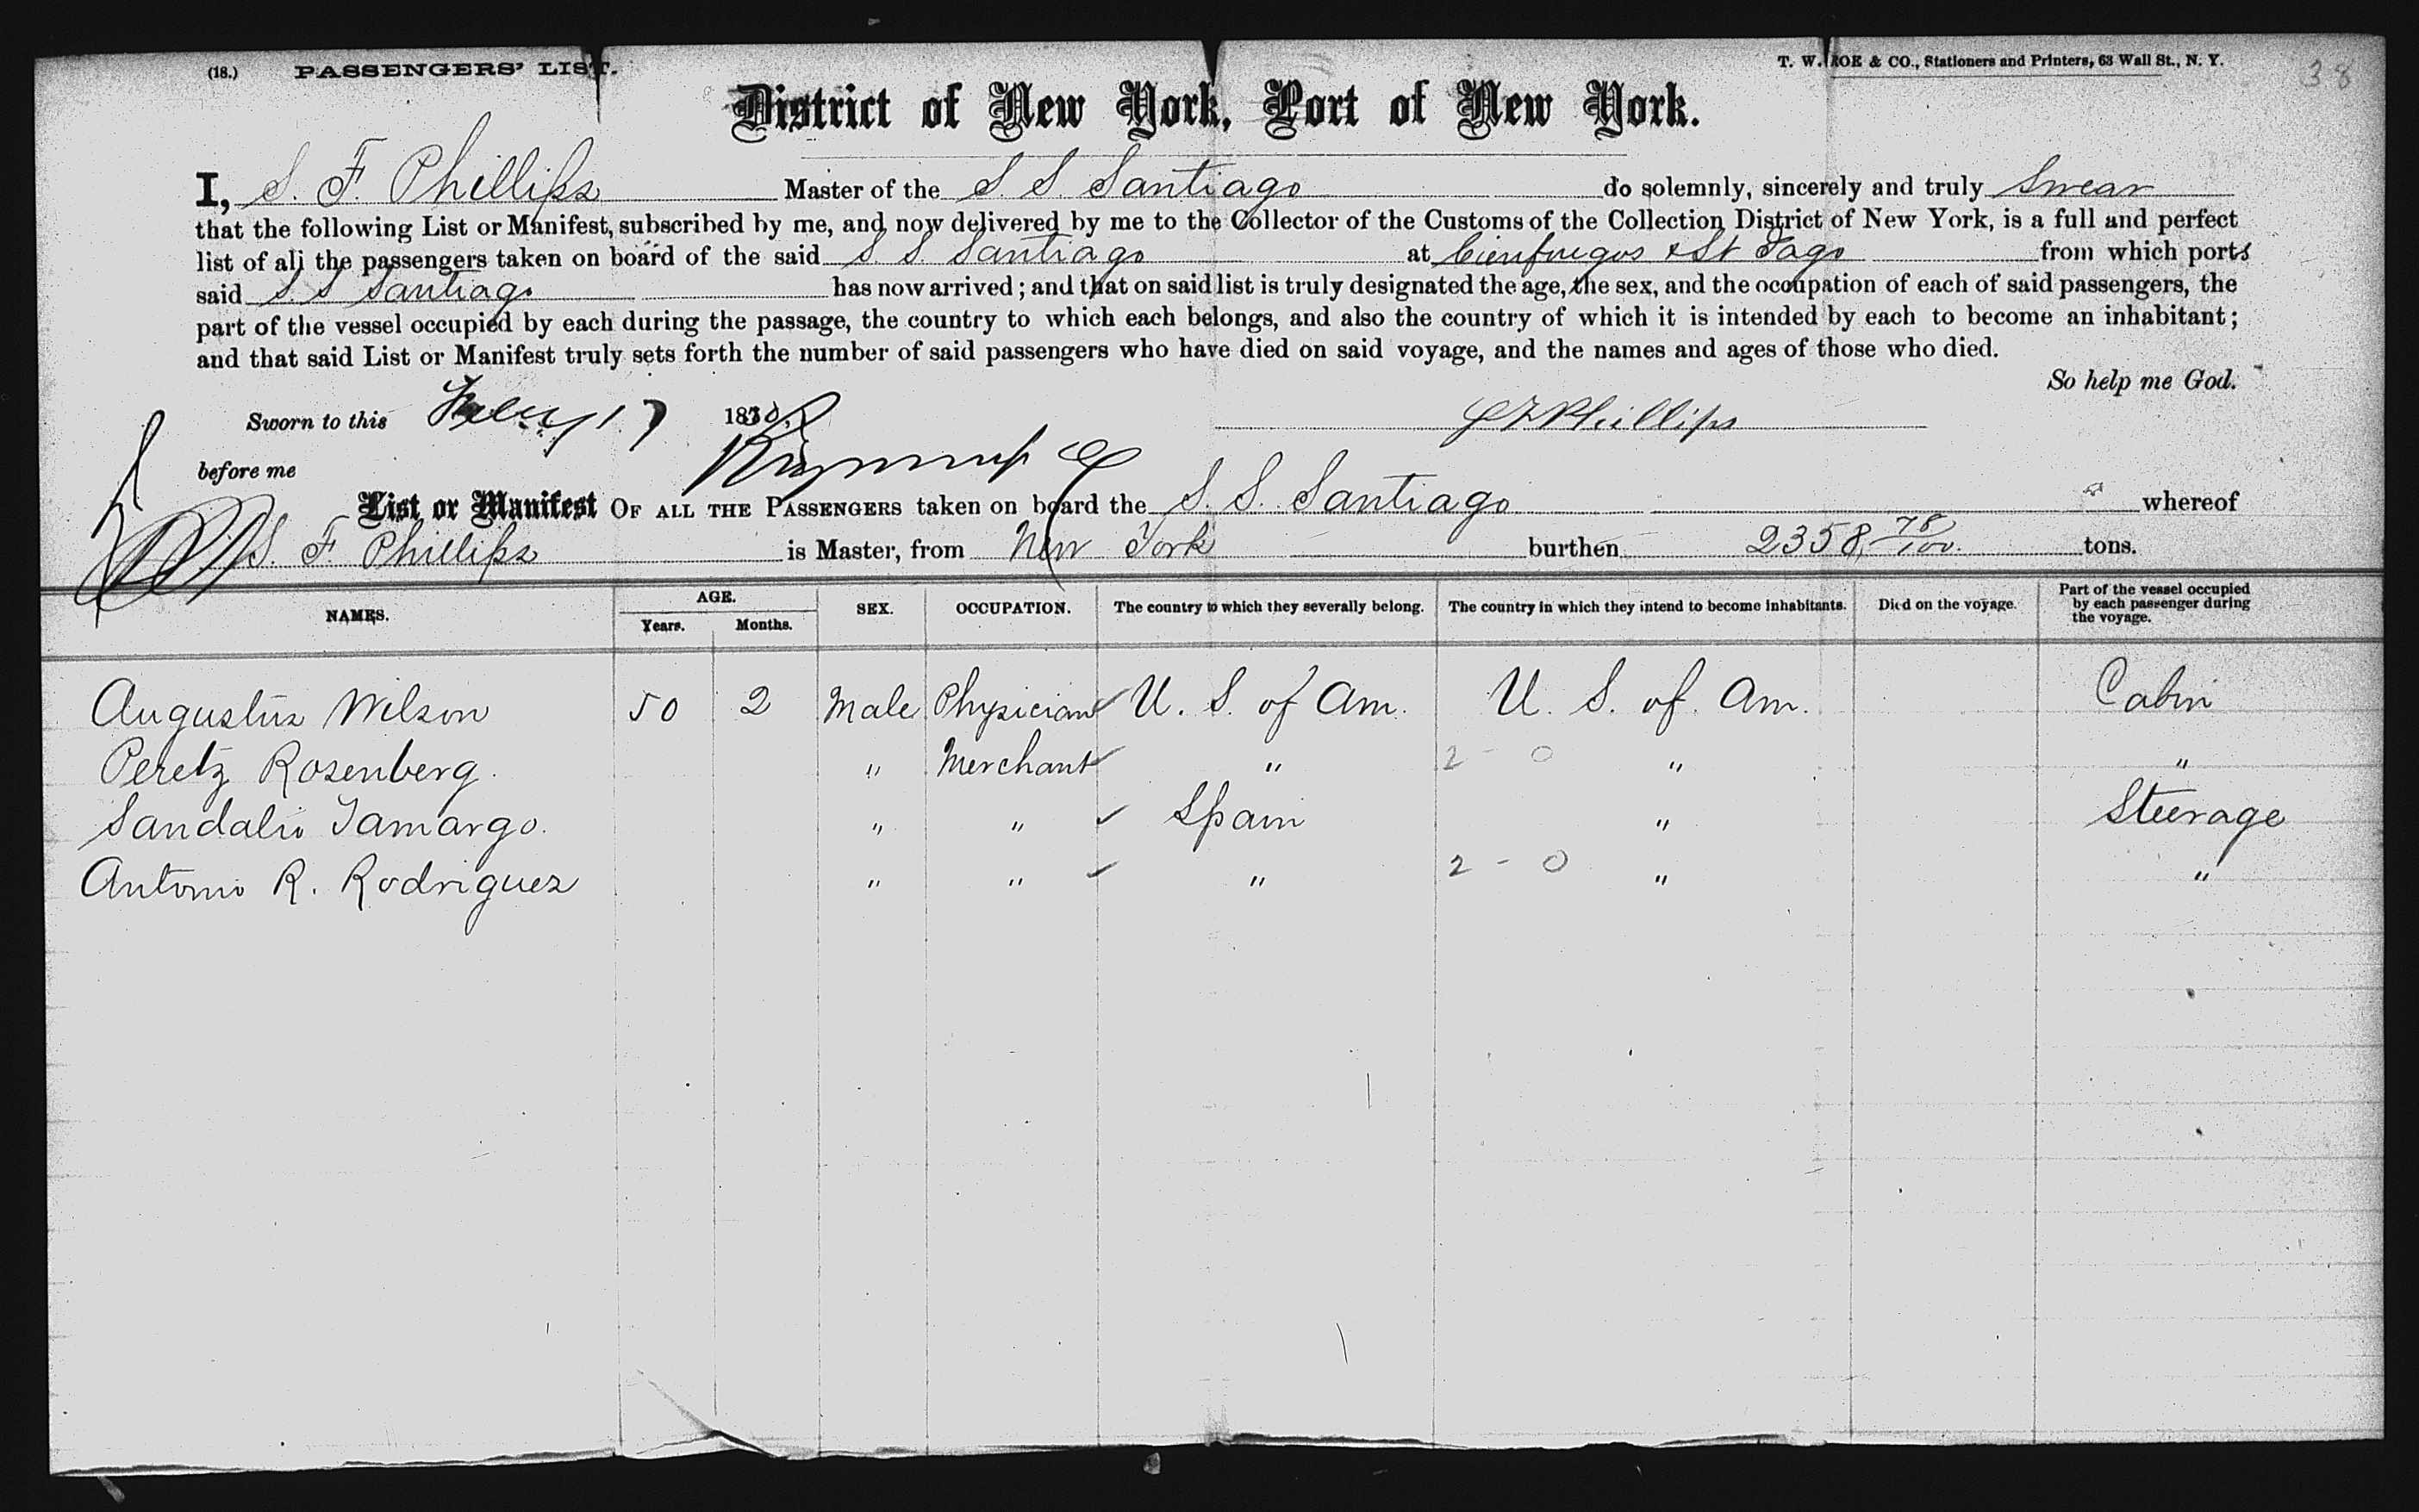 (18.) PASSENGERS' LIST. T. W. ROE & CO., Stationers and Printers, 63 Wall St., N. Y. 38
District of New York, Port of New York.
I, S. F. Phillips Master of the S S Santiago do solemnly, sincerely and truly Swear
that the following List or Manifest, subscribed by me, and now delivered by me to the Collector of the Customs of the Collection District of New York, is a full and perfect
list of all the passengers taken on board of the said S. S. Santiago at Cienfuegos & St Iago from which ports
said S. S Santiago has now arrived; and that on said list is truly designated the age, the sex, and the occupation of each of said passengers, the
part of the vessel occupied by each during the passage, the country to which each belongs, and also the country of which it is intended by each to become an inhabitant;
and that said List or Manifest truly sets forth the number of said passengers who have died on said voyage, and the names and ages of those who died.
So help me God.
Sworn to this Feby 17 18 S F Phillips
before me
List or Manifest OF ALL THE PASSENGERS taken on board the S. S. Santiago whereof
S. F. Phillips is Master, from New York burthen 2358 78/100 tons.
NAMES. AGE. Years. Months. SEX. OCCUPATION. The country to which they severally belong. The country in which they intend to become inhabitants. Died on the voyage. Part of the vessel occupied by each passenger during the voyage.
Augustus Wilson 50 2 Male Physician ✓ U. S. of Am. U. S. of Am. Cabin
Peretz Rosenberg. " Merchant ✓ " 2 - 0 " "
Sandalio Tamargo. " " ✓ Spain " Steerage
Antonio R. Rodriguez " " ✓ " 2 - 0 " "